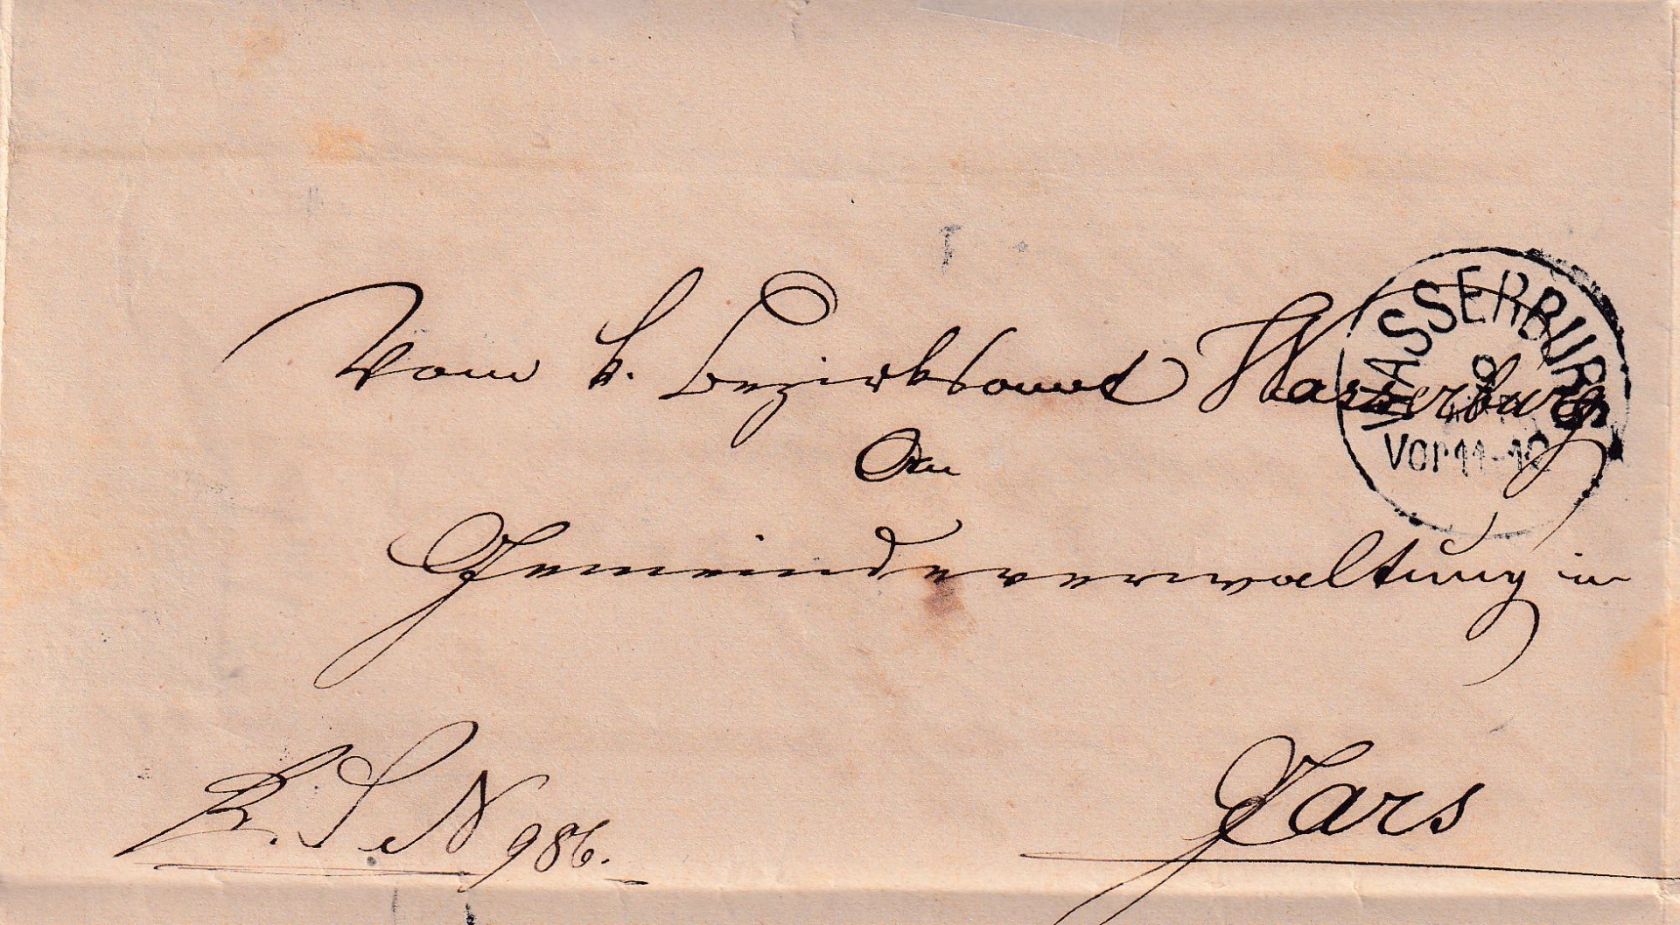 Vom k. Bezirksamt Wasserburg
An
Gemeindeverwaltung in
Gars
R. S. N 986.
WASSERBURG
9
Vor 11-12